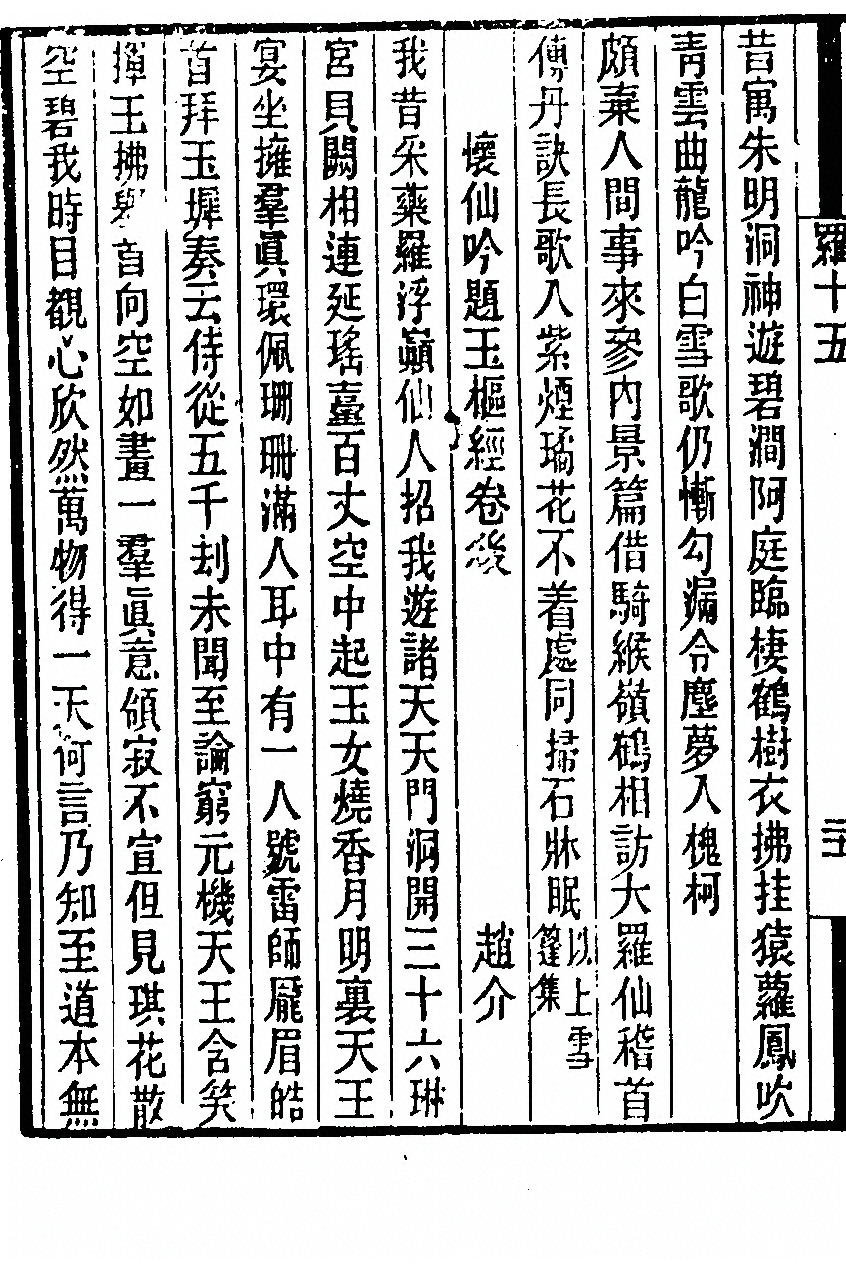 羅十五
昔寓朱明洞神遊碧澗阿庭臨棲鶴樹衣拂挂猿蘿鳳吹
青雲曲龍吟白雪歌仍慚勾漏令塵夢入槐柯
頗棄人間事來參內景篇借騎緱嶺鶴相訪大羅仙稽首
傳丹訣長歌入紫煙璚花不着處同掃石牀眠以上雪
篷集
懷仙吟題玉樞經卷後 趙介
我昔采藥羅浮巔仙人招我遊諸天天門洞開三十六琳
宮貝闕相連延瑤臺百丈空中起玉女燒香月明裏天王
宴坐擁羣眞環佩珊珊滿人耳中有一人號雷師厖眉皓
首拜玉墀奏云侍從五千刦未聞至論窮元機天王含笑
揮玉拂舉首向空如畫一羣眞意領寂不宣但見琪花散
空碧我時目觀心欣然萬物得一天何言乃知至道本無